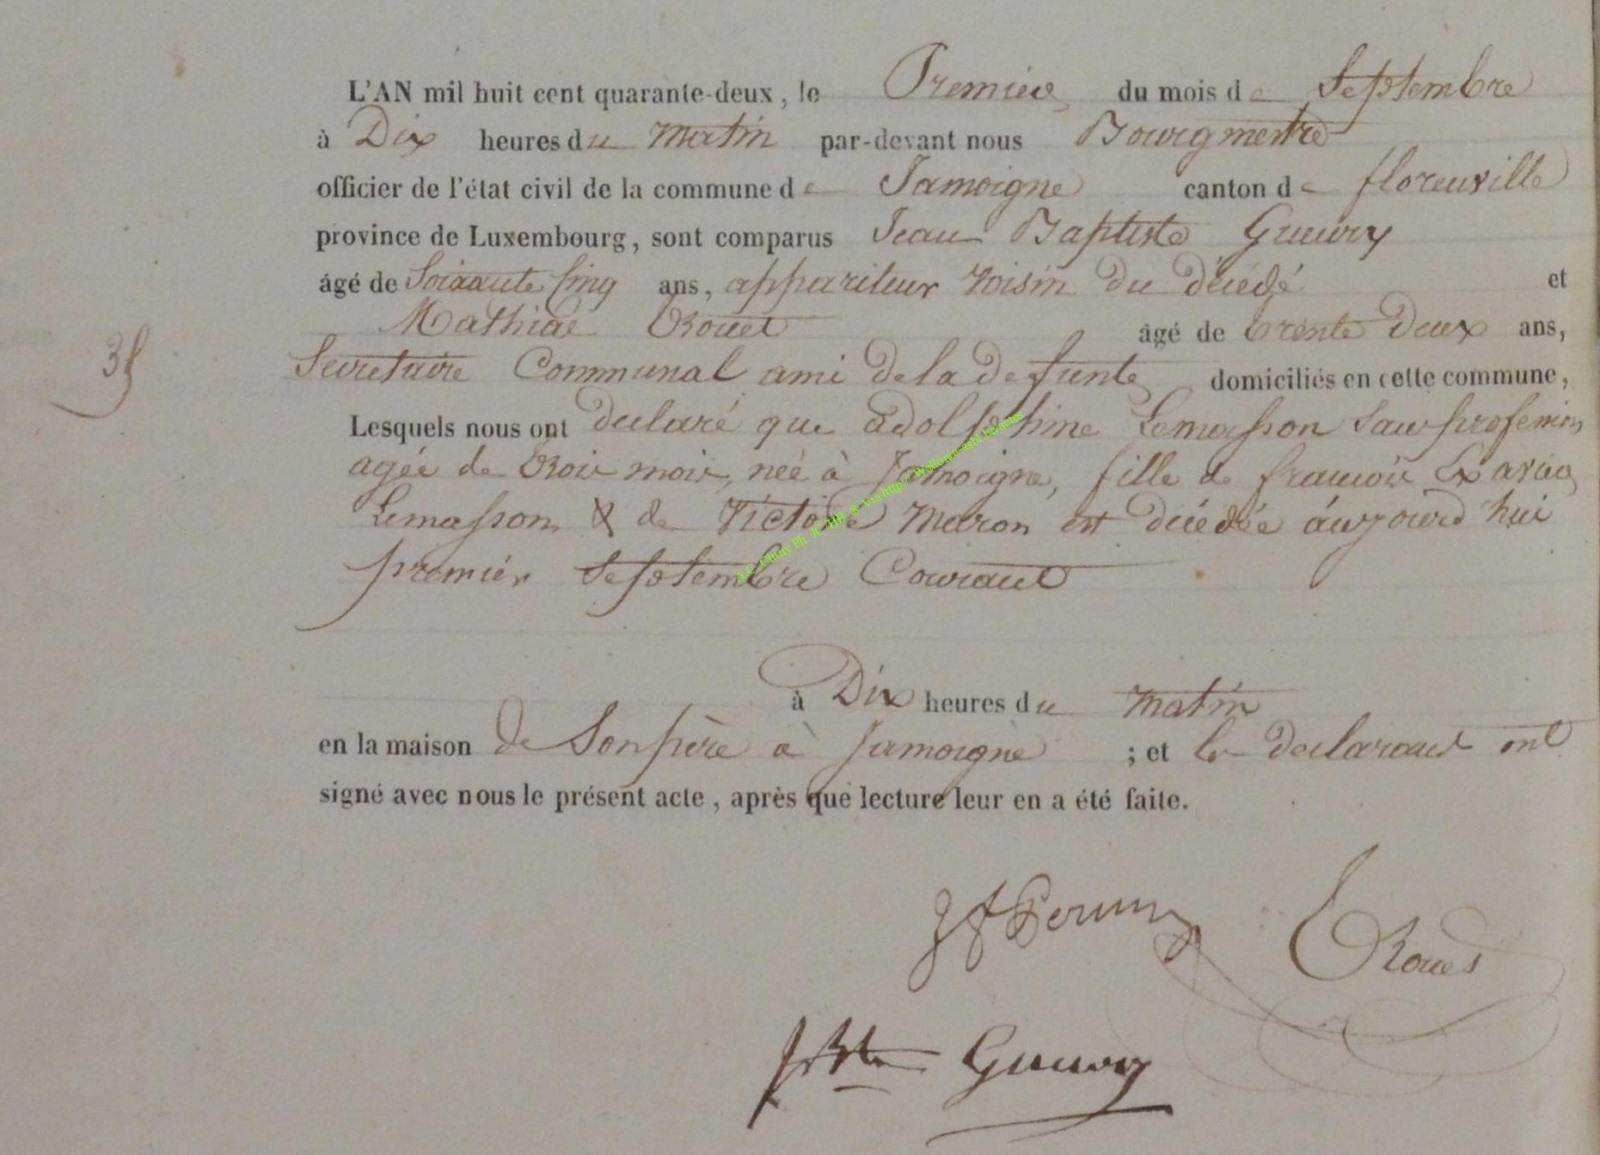 L'AN mil huit cent quarante-deux, le Premier du mois de Septembre
à Dix heures du Matin par-devant nous Bourgmestre
officier de l'état civil de la commune de Jamoigne canton de florenville
province de Luxembourg, sont comparus Jean Baptiste Gueury
âgé de Soixante Cinq ans, appariteur voisin du décédé et
Mathias Rouet âgé de trente deux ans,
Secretaire Communal ami de la defunte domiciliés en cette commune,
35
Lesquels nous ont declaré que adolphine Lemasson sans profession
agée de trois mois, née à Jamoigne, fille de francois Exavier
Lemasson & de Victoire Maron est décédée aujourd'hui
premier Septembre Courant
à Dix heures du matin
en la maison de Son père à Jamoigne ; et les declarant ont
signé avec nous le présent acte, après que lecture leur en a été faite.
Rouet
JBte Gueury